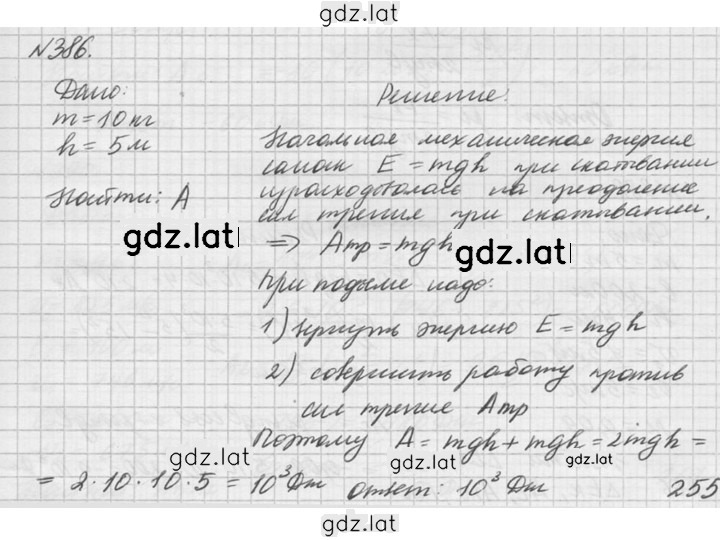 gdz.lat
№386.
Дано:
m = 10 кг
h = 5 м
Найти: A
Решение:
Начальная механическая энергия
санок E = mgh при скатывании
израсходовалась на преодоление
сил трения при скатывании.
=> Aтр = mgh
gdz.lat
gdz.lat
При подъеме надо:
1) вернуть энергию E = mgh
2) совершить работу против
сил трения Aтр
Поэтому A = mgh + mgh = 2mgh =
= 2·10·10·5 = 10³ Дж Ответ: 10³ Дж
gdz.lat
gdz.lat
gdz.lat
255
gdz.lat